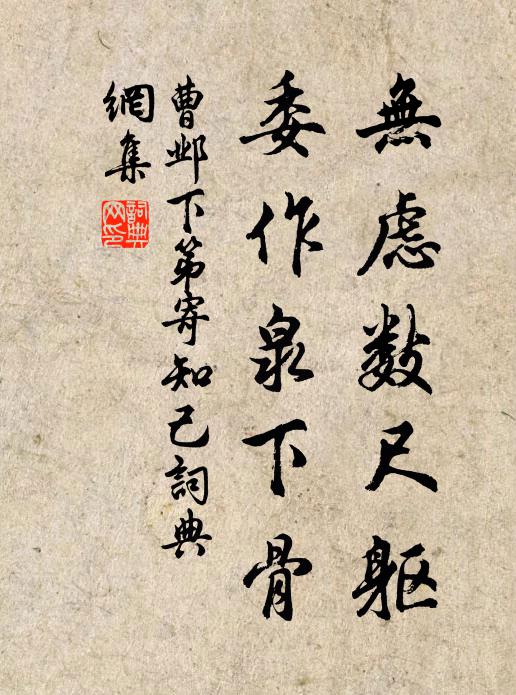 無慮數尺軀
委作泉下骨
曹邺下第寄知己詞典
網集
詞典网印